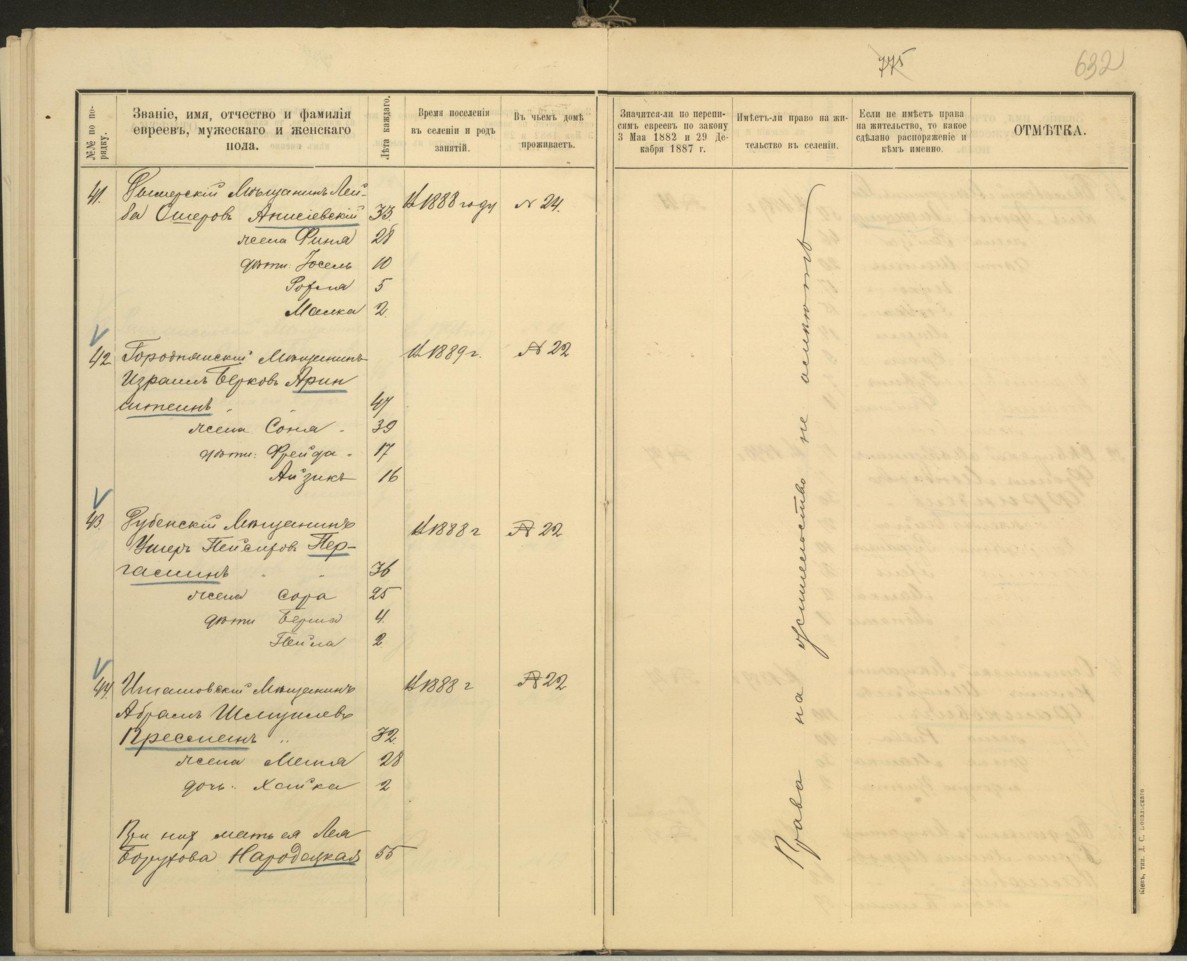 775
632
№№ по порядку.
Званіе, имя, отчество и фамилія
евреевъ, мужескаго и женскаго
пола.
Лѣта каждаго.
Время поселенія
въ селеніи и родъ
занятій.
Въ чьемъ домѣ
проживаетъ.
Значится-ли по перепи-
сямъ евреевъ по закону
3 Мая 1882 и 29 Де-
кабря 1887 г.
Имѣетъ-ли право на жи-
тельство въ селеніи.
Если не имѣетъ права
на жительство, то какое
сдѣлано распоряженіе и
кѣмъ именно.
ОТМѢТКА.
41. Мѣщанинъ Лей-
ба Ошеровъ Анисіевскій 33 1888 году № 24.
жена Финя 28
дѣти: Іосель 10
5
Малка 2
42. Мѣщанинъ 1889 г. № 22
Израиль Берковъ Арин
штеинъ 47
жена Соня 39
дѣти: Фрейда 17
Айзикъ 16
43. Дубенскій Мѣщанинъ 1888 г № 22
Ушеръ Пейсиховъ Пер-
гаминъ 36
жена Сора 25
дѣти Берта 4
Пейла 2
44. Мѣщанинъ 1888 г № 22
Абрамъ Шмуилевъ
Пресменъ 32
жена Меня 28
дочь Хайка 2
При нихъ мать ея Лея
Борухова Народецкая 55
Права на жительство не имѣютъ
Кіевъ, тип. Д. С.